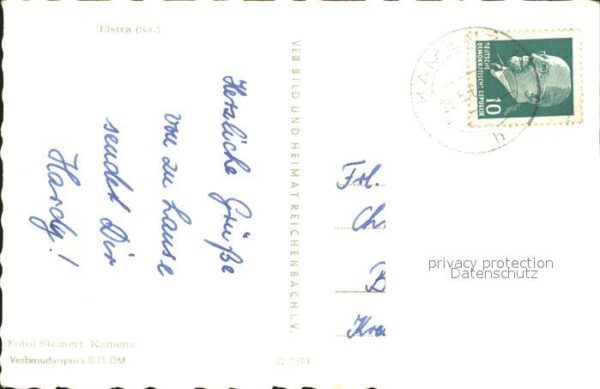 Elstra (Sa.)
Herzliche Grüße
von zu Hause
sendet Dir
Hardy!
VEB BILD UND HEIMAT REICHENBACH i. V.
DEUTSCHE
DEMOKRATISCHE REPUBLIK
10
KAMENZ
h
Frl.
Ch
B
Kre
privacy protection
Datenschutz
Foto: Steinert, Kamenz
Verbraucherpreis 0.15 DM